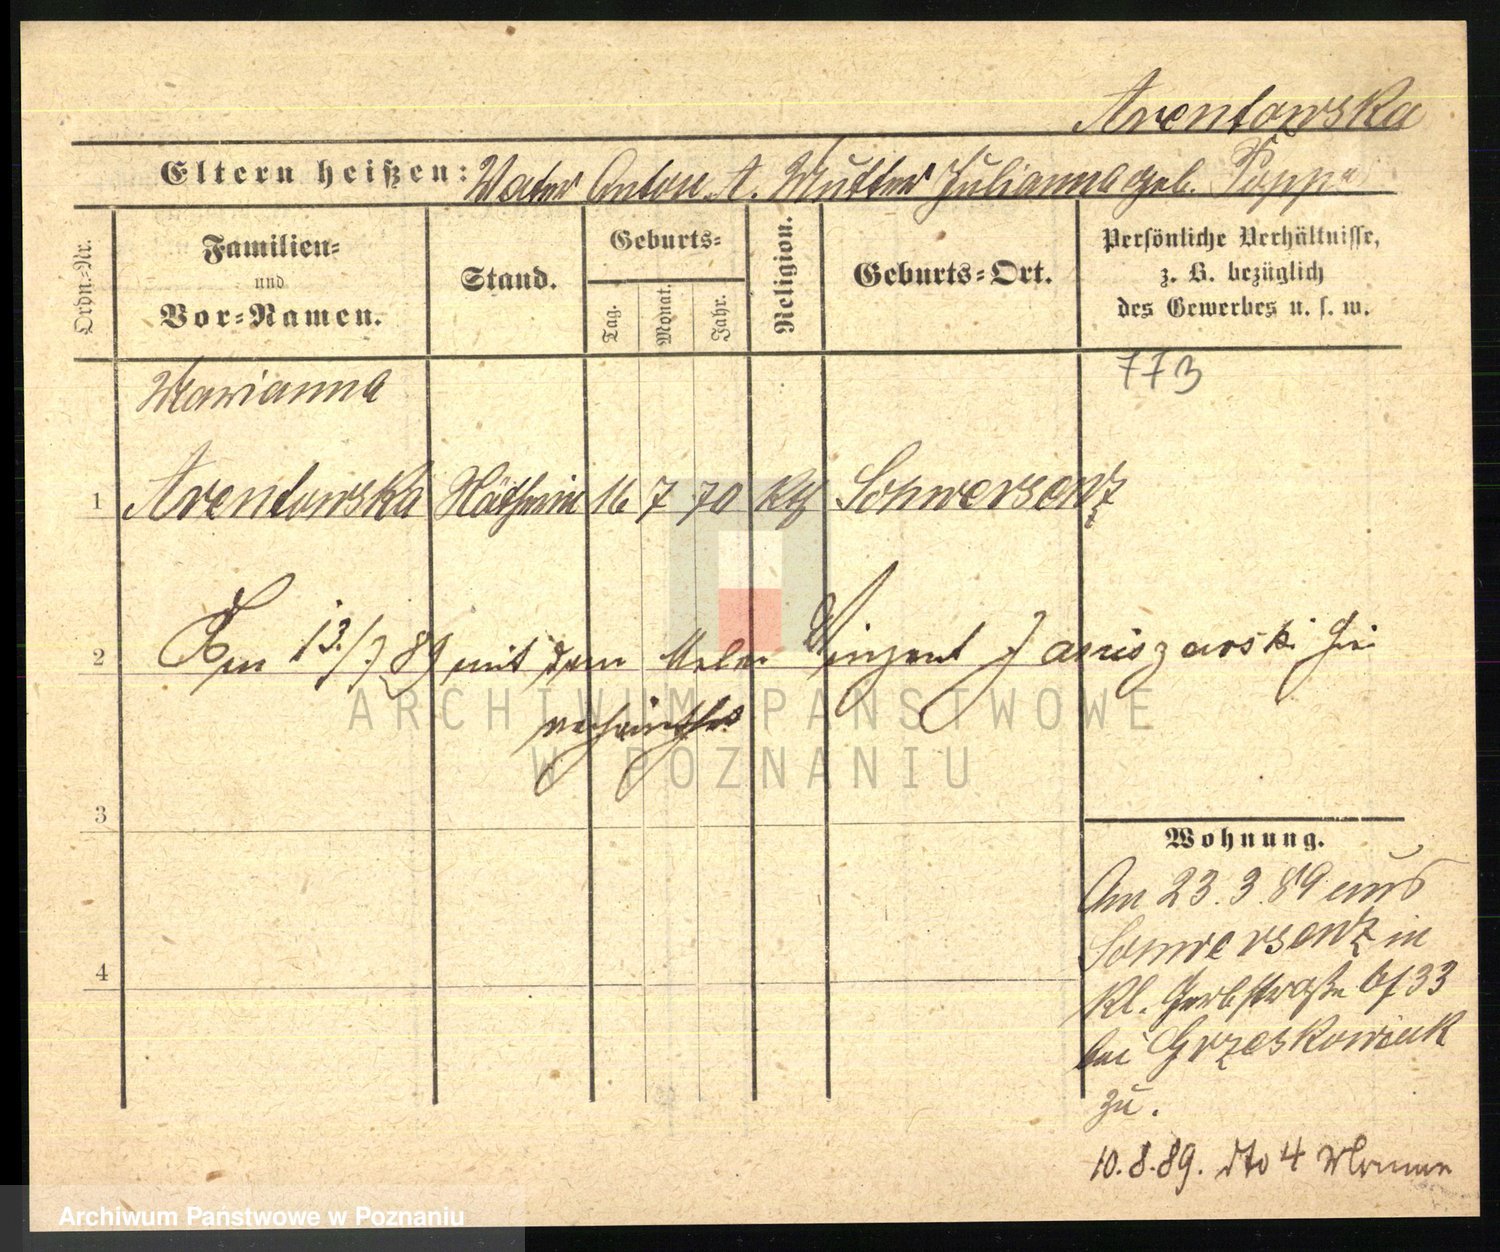 Arentowska
Eltern heißen: Vater Anton A. Mutter Julianna geb. Pupp
Ordn.-Nr.
Familien-
und
Vor-Namen.
Stand.
Geburts-
Tag.
Monat.
Jahr.
Religion.
Geburts-Ort.
Persönliche Verhältnisse,
z. B. bezüglich
des Gewerbes u. s. w.
773
Marianna
1 Arentowska Näherin 16 7 70 kth Schwersenz
2 Am 13./7. 89 mit dem Maler Vinzent Janiszewski hier
verheirathet
ARCHIWUM PAŃSTWOWE
W POZNANIU
3
Wohnung.
Am 23.3.89 aus
Schwersenz in
4
Kl. Gerbstraße 6/33
bei Grzeskowiak
zu.
10.8.89. dto 4
Archiwum Państwowe w Poznaniu